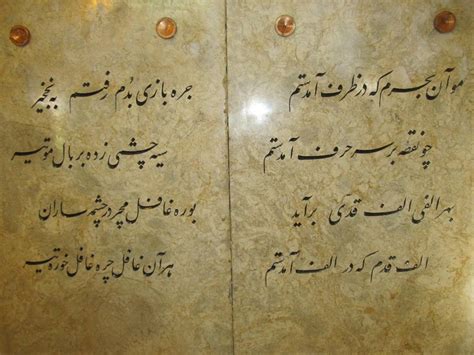 مو آن بحرم که در ظرف آمدستم
چو نقطه بر سر حرف آمدستم
بهر الفی الف قدی برآید
الف قدم که در الف آمدستم
جره بازی بُدم رفتم به نخجیر
سیه چشمی زده بر بال مو تیر
بوره غافل مچر در چشمه ساران
هر آن غافل چره غافل خوره تیر